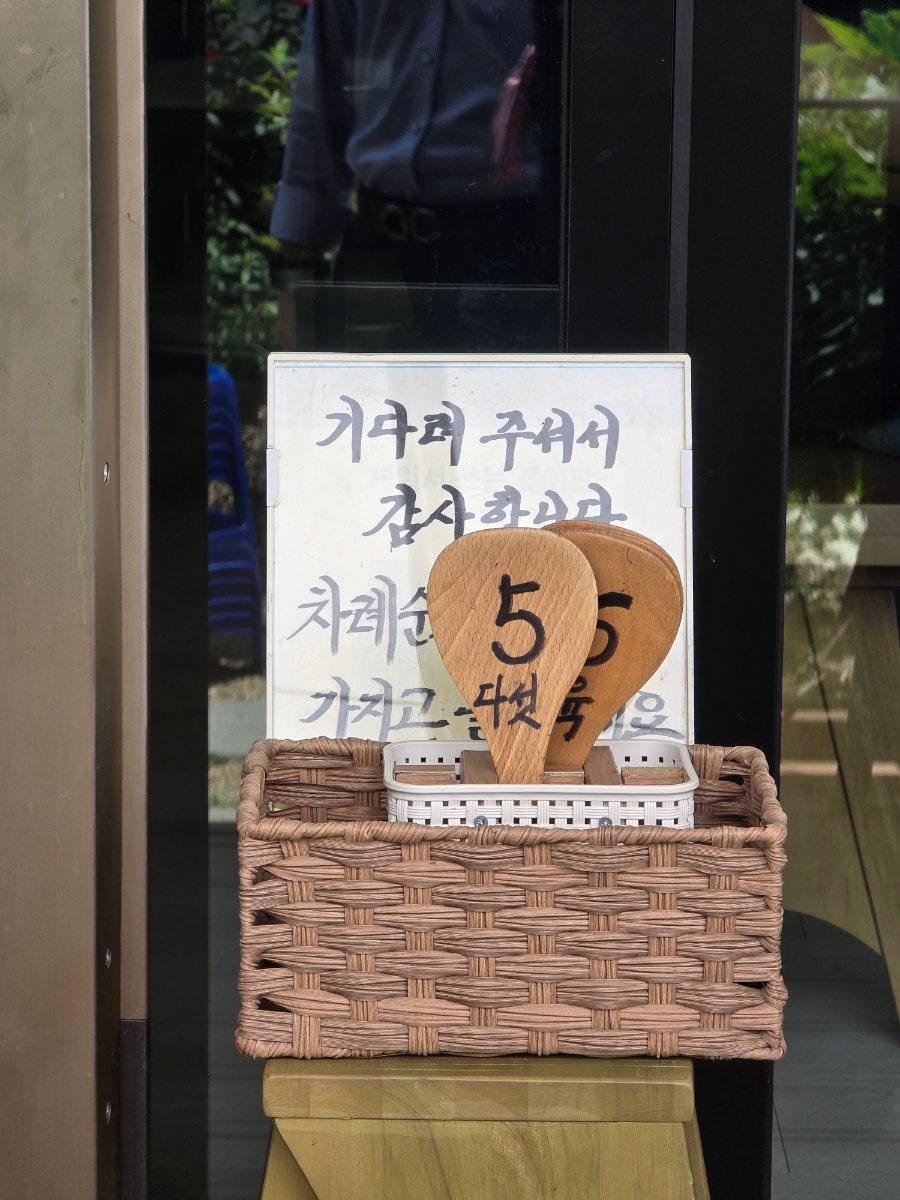 기다려 주셔서
감사합니다
차례순
가지고
5
다섯
육